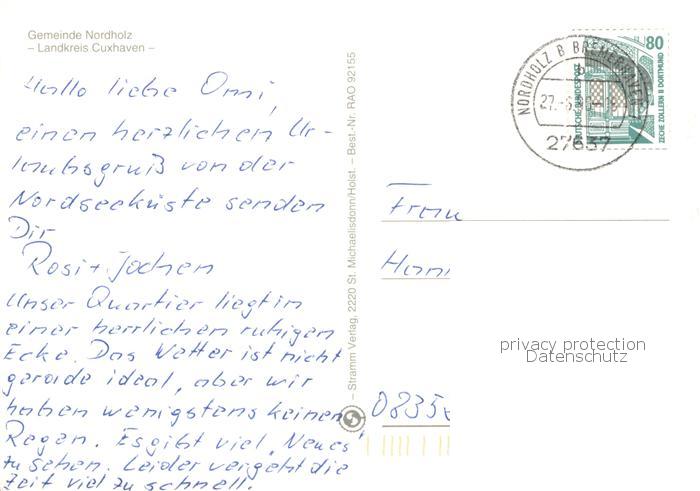 Gemeinde Nordholz
– Landkreis Cuxhaven –
Hallo liebe Omi,
einen herzlichen Ur-
laubsgruß von der
Nordseeküste senden
Dir
Rosi + Jochen
Unser Quartier liegt in
einer herrlichen ruhigen
Ecke. Das Wetter ist nicht
gerade ideal, aber wir
haben wenigstens keinen
Regen. Es gibt viel „Neues“
zu sehen. Leider vergeht die
Zeit viel zu schnell.
– Stramm Verlag, 2220 St. Michaelisdonn/Holst. – Best.-Nr. RAO 92155
NORDHOLZ B BREMERHAVEN
b
27.-6.
27637
DEUTSCHE BUNDESPOST
80
ZECHE ZOLLERN II DORTMUND
Frau
Hann
0835
privacy protection
Datenschutz